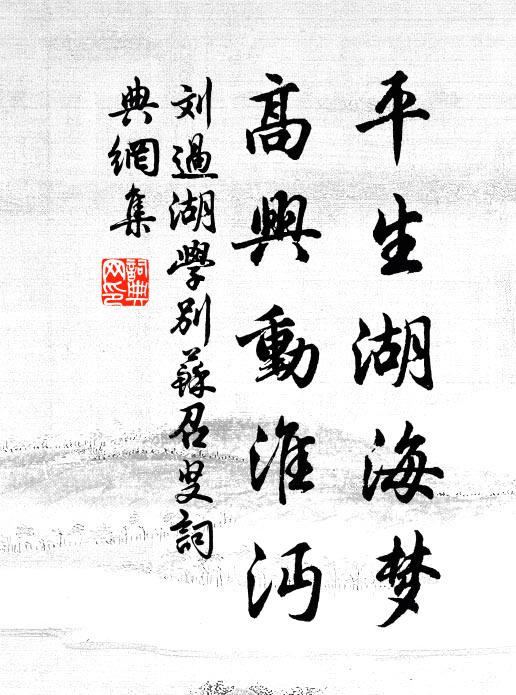 平生湖海梦
高興動淮沔
刘過湖學別蘇召叟詞
典網集
詞典
网印